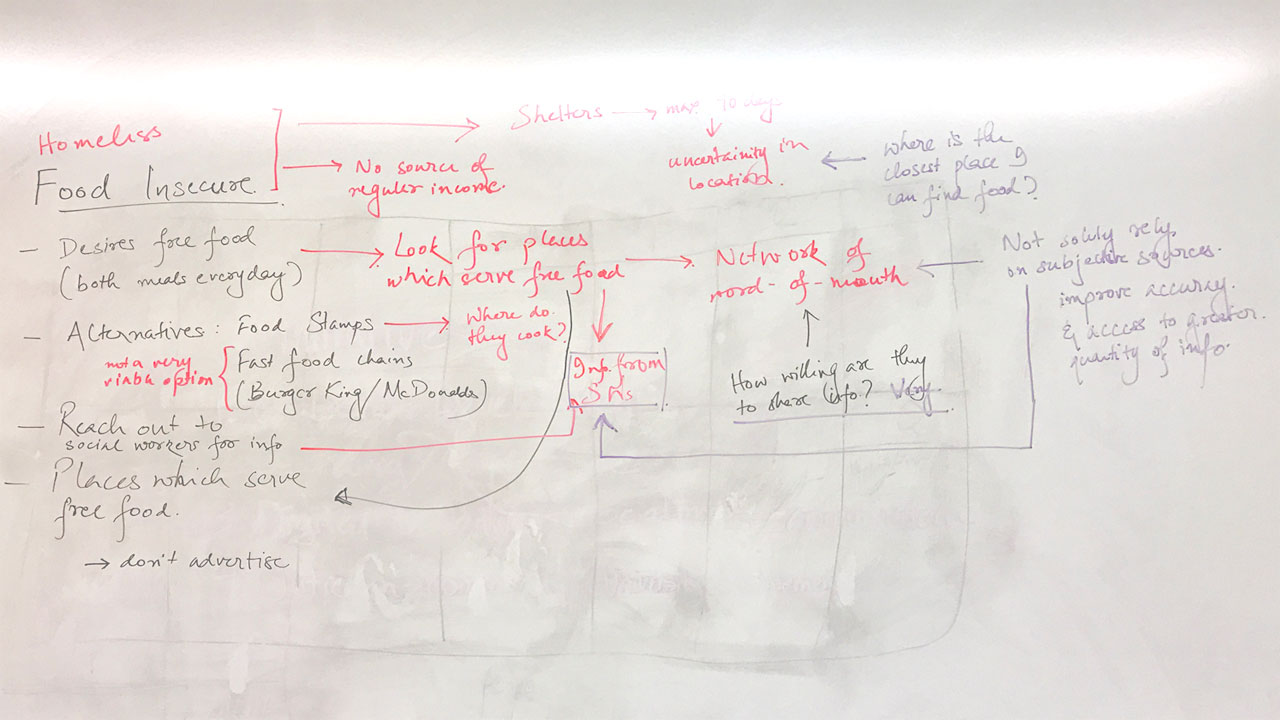 Homeless
Food Insecure.
Shelters → max 70 days
→ No source of
regular income.
uncertainity in
location.
where is the
closest place I
can find food?
— Desires free food
(both meals everyday)
Look for places
which serve free food
Network of
word-of-mouth
Not solely rely
on subjective sources.
improve accuracy.
& access to greater
quantity of info.
— Alternatives: Food Stamps
Where do
they cook?
not a very
viable option
Fast food chains
(Burger King/McDonalds)
Info from
SWs
How willing are they
to share info? Very.
— Reach out to
social workers for info
— Places which serve
free food.
→ don't advertise